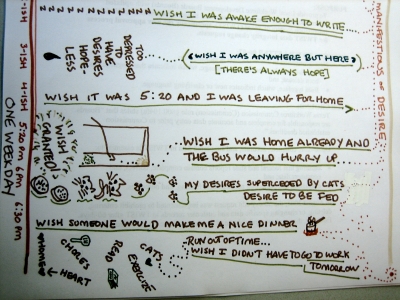 z z z z z z z z z z z z z z z z WISH I WAS AWAKE ENOUGH TO WRITE
MANIFESTATIONS OF DESIRE
TOO
DEPRESSED
TO
HAVE
DESIRES
HOPE-
LESS
WISH I WAS ANYWHERE BUT HERE
[THERE'S ALWAYS HOPE]
WISH IT WAS 5:20 AND I WAS LEAVING FOR HOME
WISH
GRANTED!
WISH I WAS HOME ALREADY AND
THE BUS WOULD HURRY UP
MY DESIRES SUPERCEDED BY CATS
DESIRE TO BE FED
WISH SOMEONE WOULD MAKE ME A NICE DINNER
RUN OUT OF TIME...
WISH I DIDN'T HAVE TO GO TO WORK
TOMORROW
CATS
EXERCISE
READ
CHORES
HEART
1-ISH
3-ISH
4-ISH
5:20 PM
6 AM
6:30 AM
ONE WEEKDAY